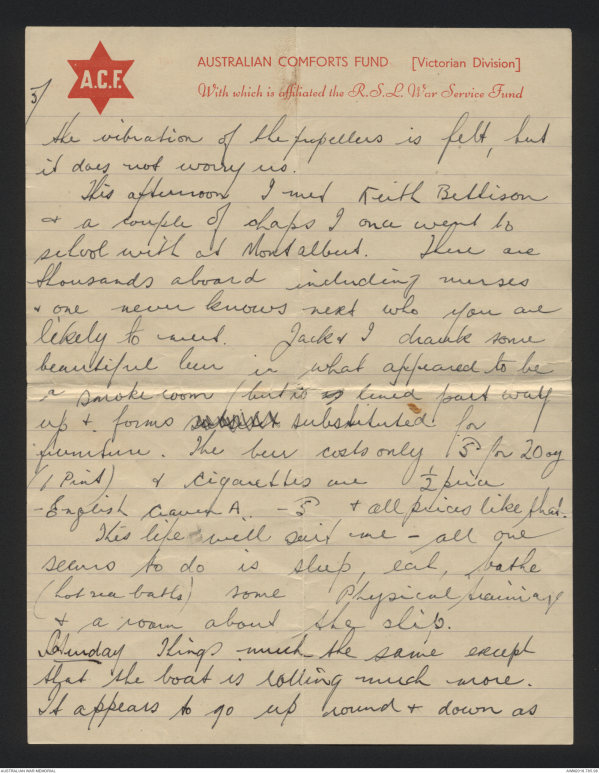 A.C.F.
AUSTRALIAN COMFORTS FUND [Victorian Division]
With which is affiliated the R.S.L. War Service Fund
3/
the vibration of the propellers is felt, but
it does not worry us.
This afternoon I met Keith Bettison
& a couple of chaps I once went to
school with at Mont albert. There are
thousands aboard including nurses
& one never knows next who you are
likely to meet. Jack & I drank some
beautiful beer in what appeared to be
a smoke room (but is lined part way
up & forms substituted for
furniture. The beer costs only for 20 oz
(1 Pint) & cigarettes are ½ price
- English Craven A. - & all prices like that.
This life will suit me - all one
seems to do is sleep, eat, bathe
(hot sea baths) some Physical training
& a roam about the ship.
Saturday Things much the same except
that the boat is rolling much more.
It appears to go up round & down as
AUSTRALIAN WAR MEMORIAL